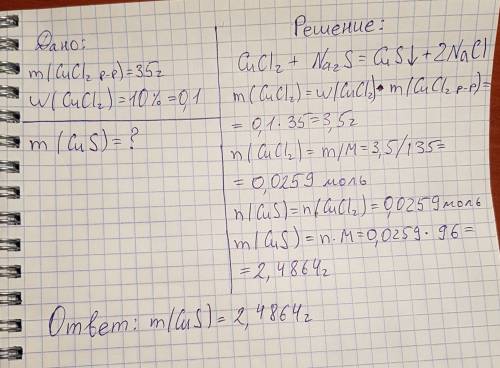 Дано:
m(CuCl₂ р-р)=35г
w(CuCl₂)=10%=0,1
m(CuS)=?
Решение:
CuCl₂ + Na₂S = CuS↓ + 2NaCl
m(CuCl₂)=w(CuCl₂)·m(CuCl₂ р-р)=
=0,1·35=3,5г
n(CuCl₂)=m/M=3,5/135=
=0,0259 моль
n(CuS)=n(CuCl₂)=0,0259моль
m(CuS)=n·M=0,0259·96=
=2,4864г
Ответ: m(CuS)=2,4864г